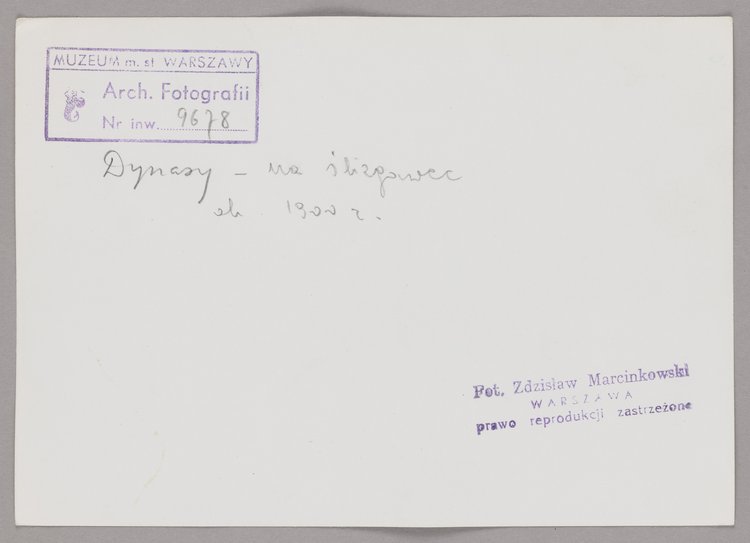 MUZEUM m. st WARSZAWY
Arch. Fotografii
Nr inw. 9678
Dynasy – na ślizgawce
ok. 1900 r.
Fot. Zdzisław Marcinkowski
WARSZAWA
prawo reprodukcji zastrzeżone